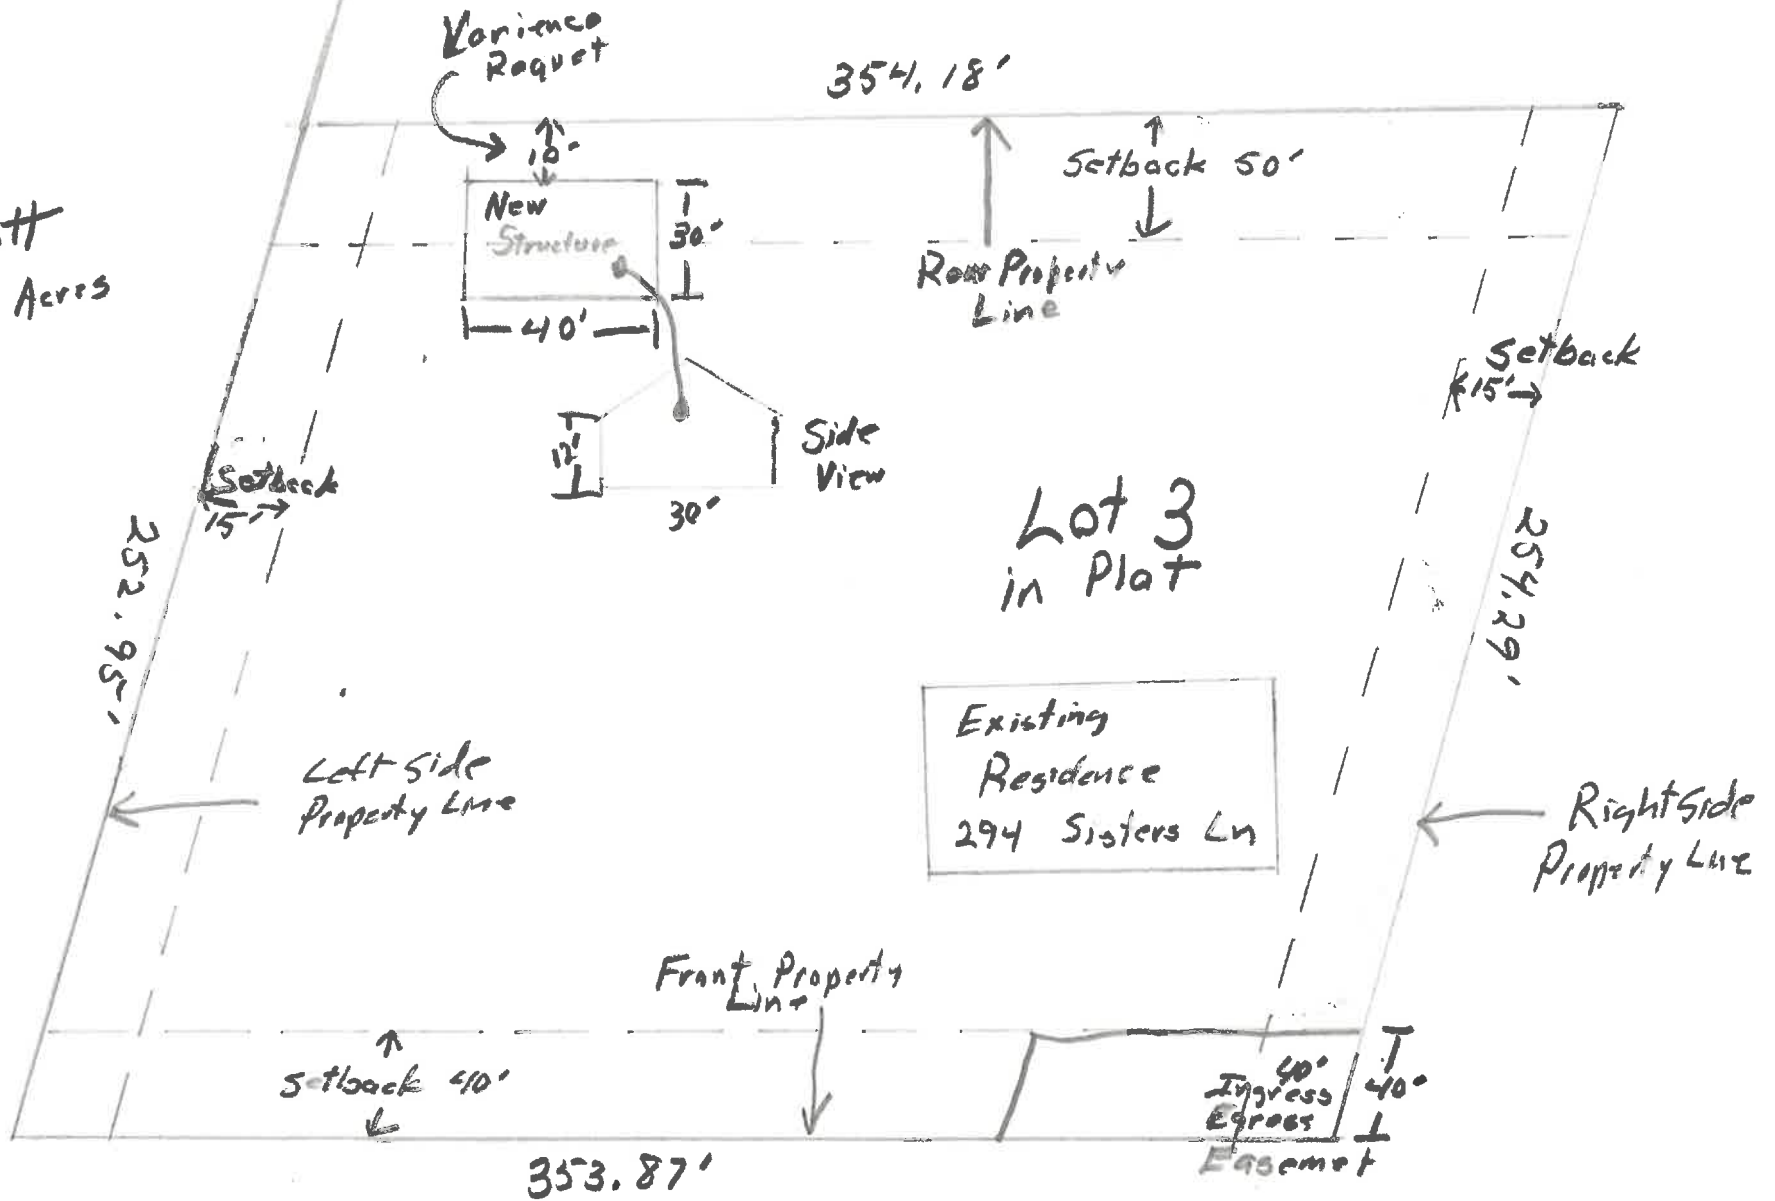 Varience
Requet
354.18'
10'
Setback 50'
New
Structure
30'
40'
Acres
Rear Property
Line
Setback
15'
Side
View
12'
30'
Setback
15'
Lot 3
in Plat
252.95'
254.29'
Existing
Residence
294 Sisters Ln
Left Side
Property Line
Right Side
Property Line
Front Property
Line
Setback 40'
40'
Ingress
Egress
Easemet
40'
353.87'